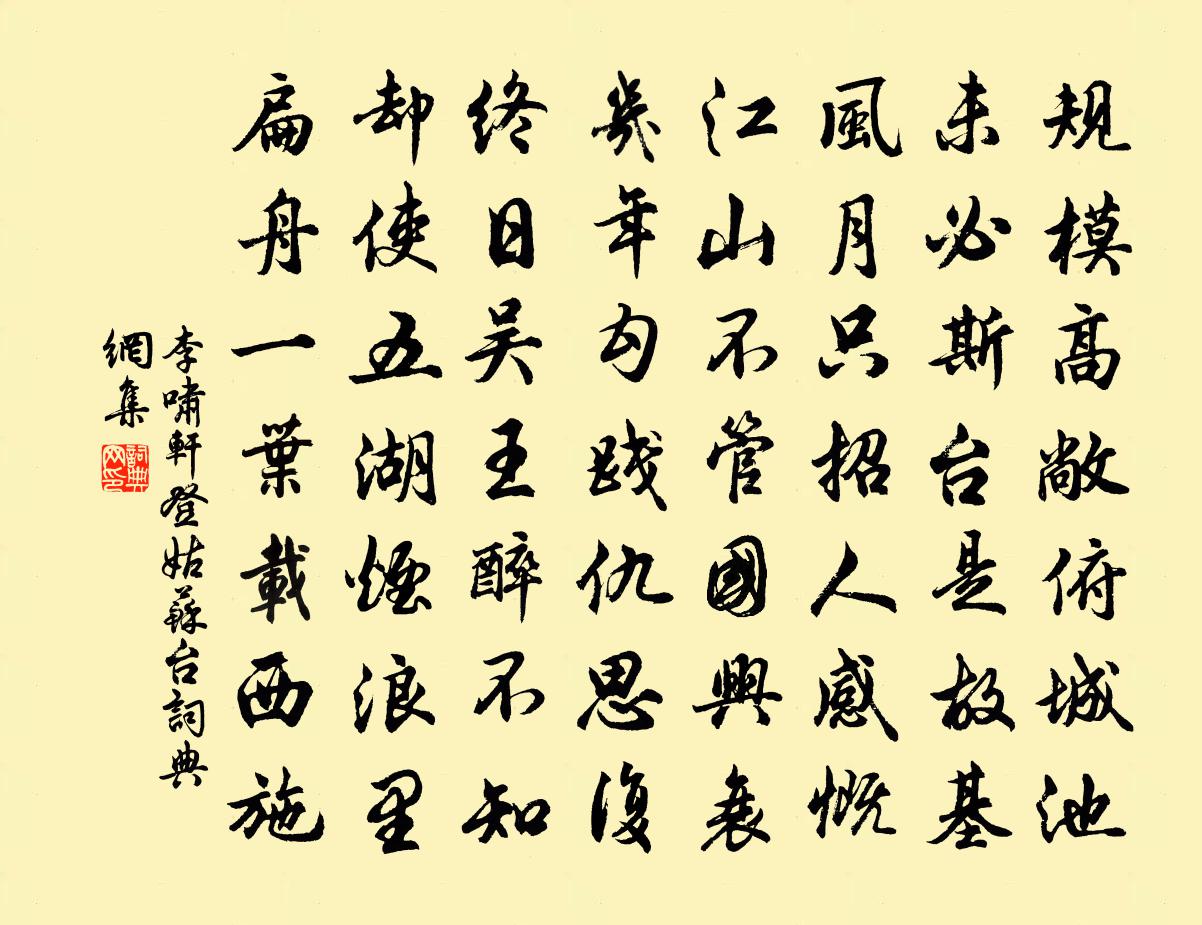 規模高敞俯城池
未必斯台是故基
風月只招人感慨
江山不管國興衰
幾年勾踐仇思復
終日吴王醉不知
却使五湖煙浪里
扁舟一葉載西施
李嘯軒登姑蘇台詞典
網集
詞典
网印